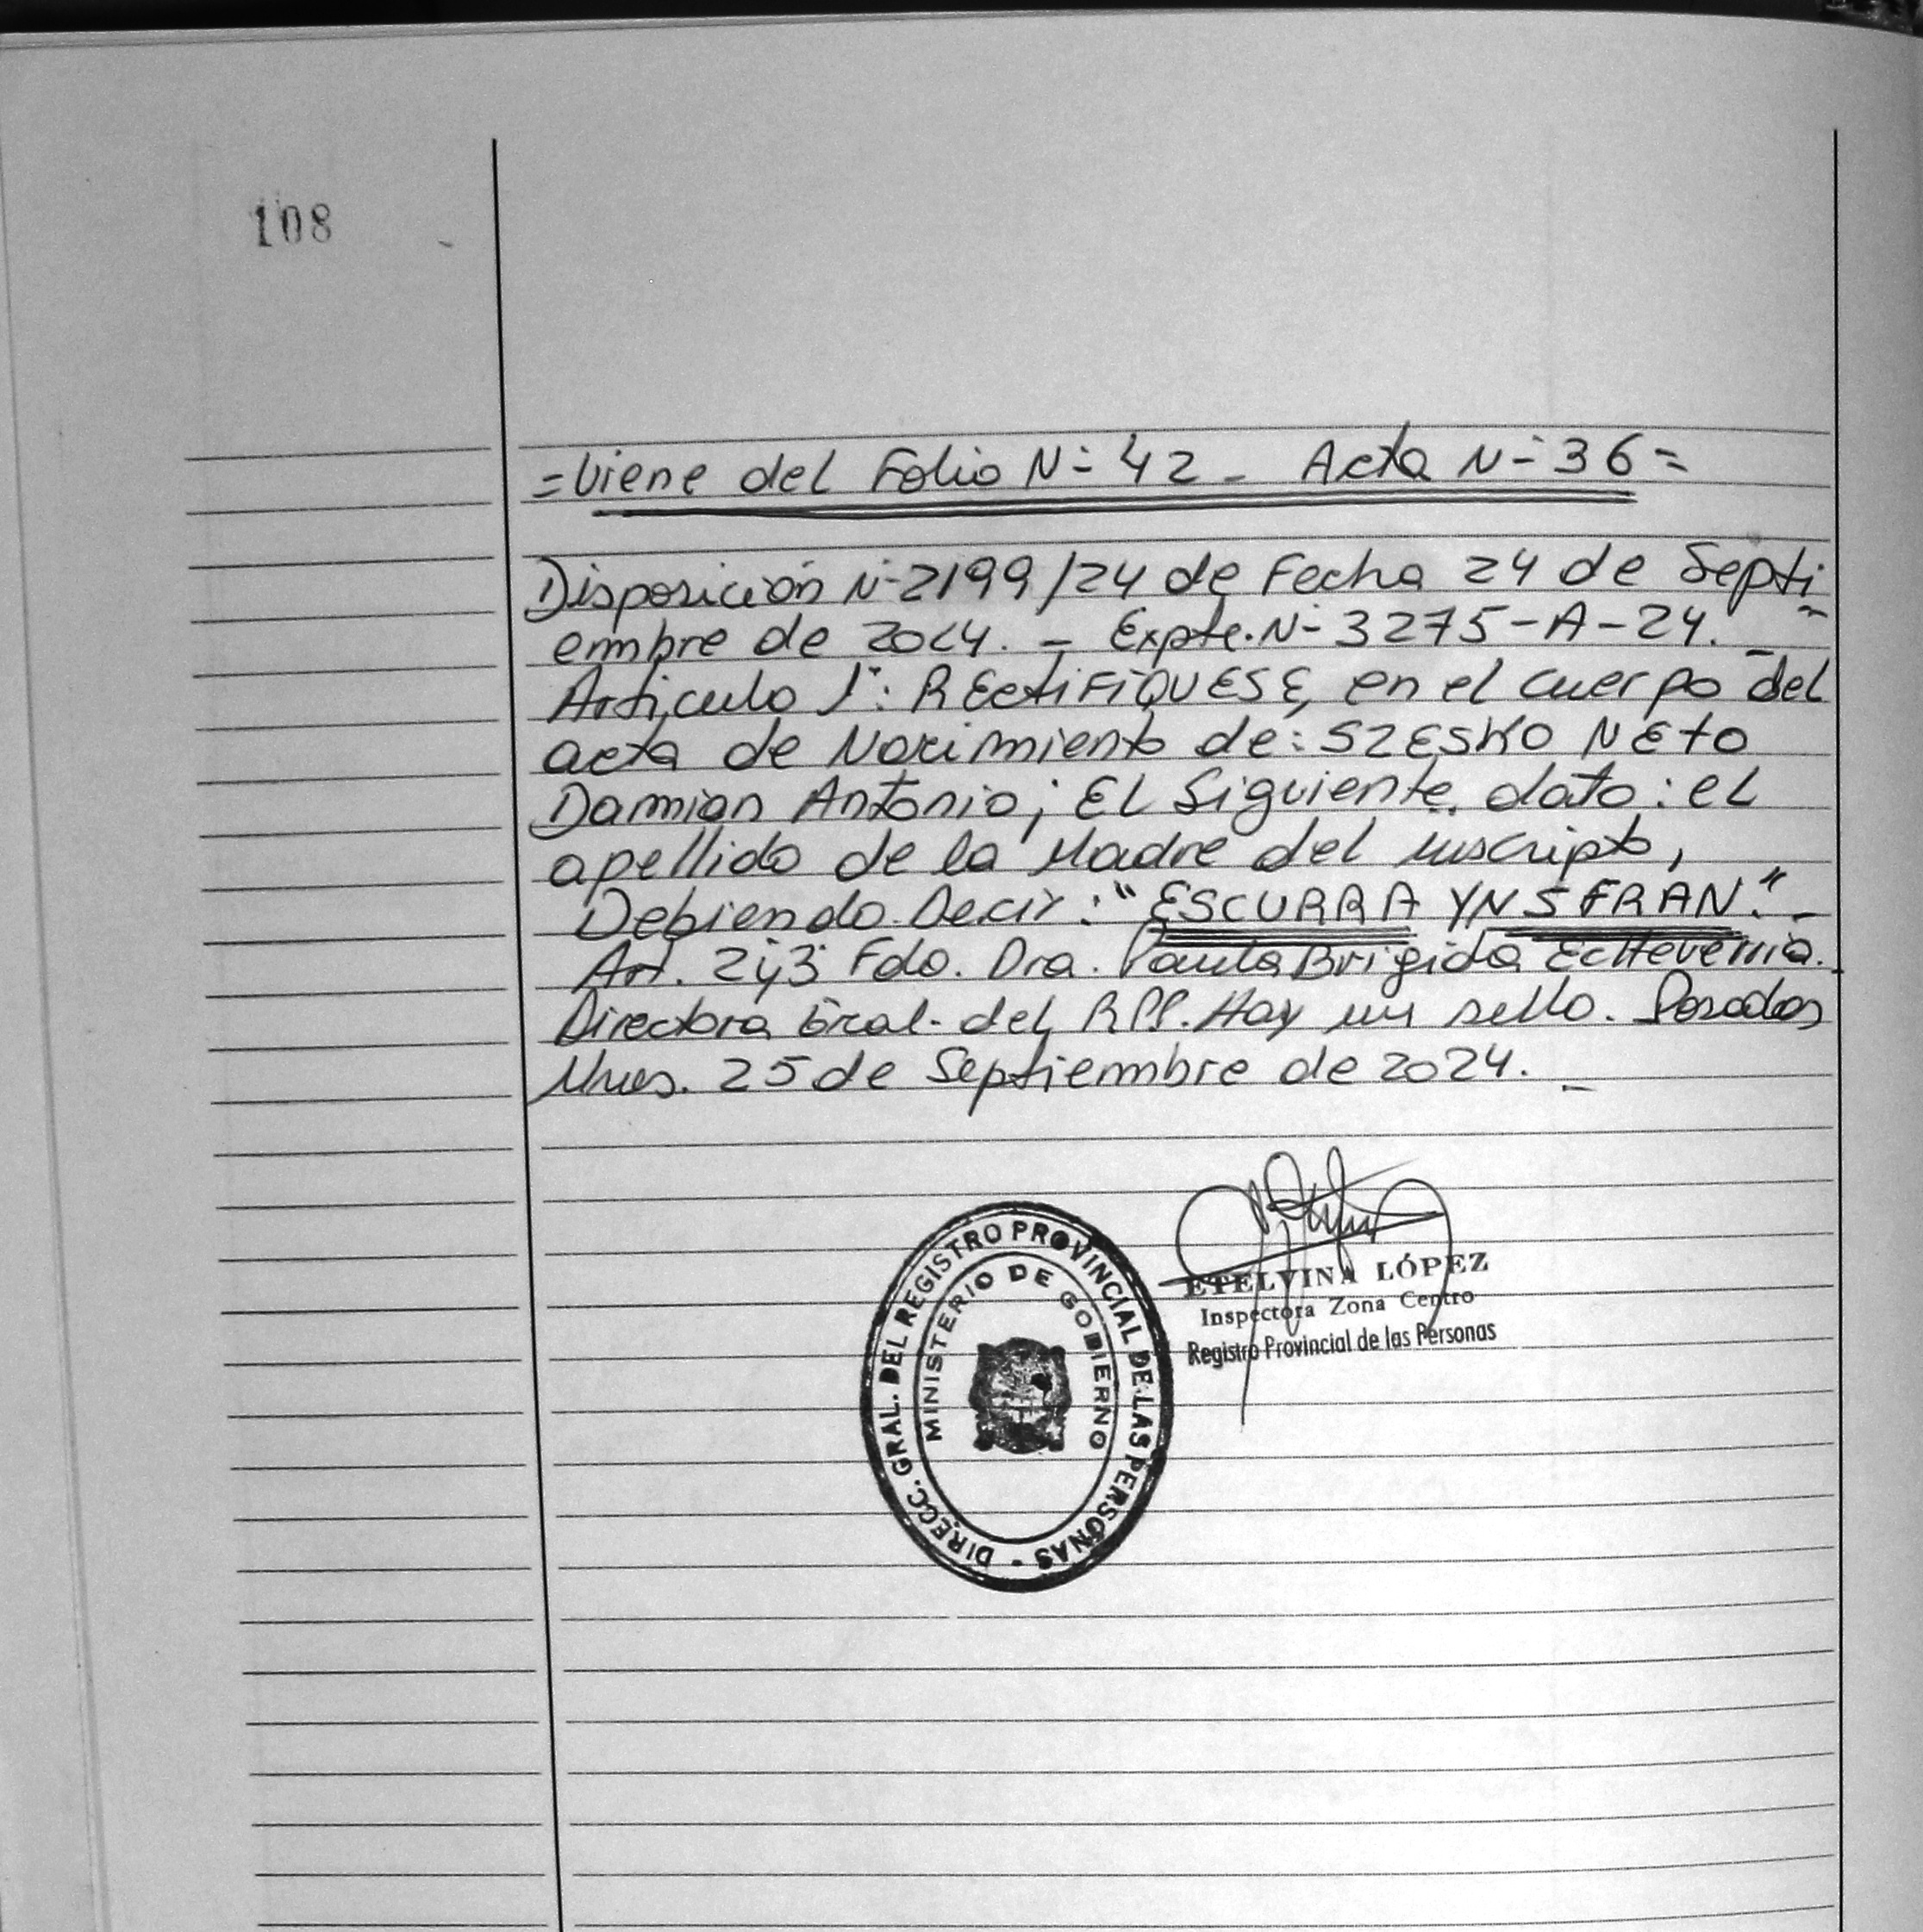 108
=Viene del Folio N- 42 - Acta N- 36=
Disposición N-2199/24 de Fecha 24 de Septi
embre de 2024. - Expte. N- 3275-A-24. -
Articulo 1°: REctiFiQUESE, en el cuerpo del
acta de Nacimiento de: SZESKO NEto
Damian Antonio; EL Siguiente dato: eL
apellido de la Madre del inscripto,
Debiendo Decir: "ESCURRA YNSFRAN". -
Art. 2 y 3 Fdo. Dra. Paula Brigida Echeverria.
Directora Gral. del RPP. Hay un sello. Posadas
Mnes. 25 de Septiembre de 2024. -
ETELVINA LÓPEZ
Inspectora Zona Centro
Registro Provincial de las Personas
DIRECC. GRAL. DEL REGISTRO PROVINCIAL DE LAS PERSONAS -
MINISTERIO DE GOBIERNO